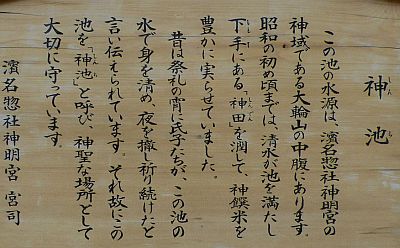 神池
この池の水源は、濱名惣社神明宮の
神域である大輪山の中腹にあります。
昭和の初め頃までは、清水が池を満たし
下手にある、神田を潤して、神饌米を
豊かに実らせていました。
昔は祭礼の宵に氏子たちが、この池の
水で身を清め、夜を撤し祈り続けたと
言い伝えられています。それ故にこの
池を、「神池」と呼び、神聖な場所として
大切に守っています。
濱名惣社神明宮 宮司